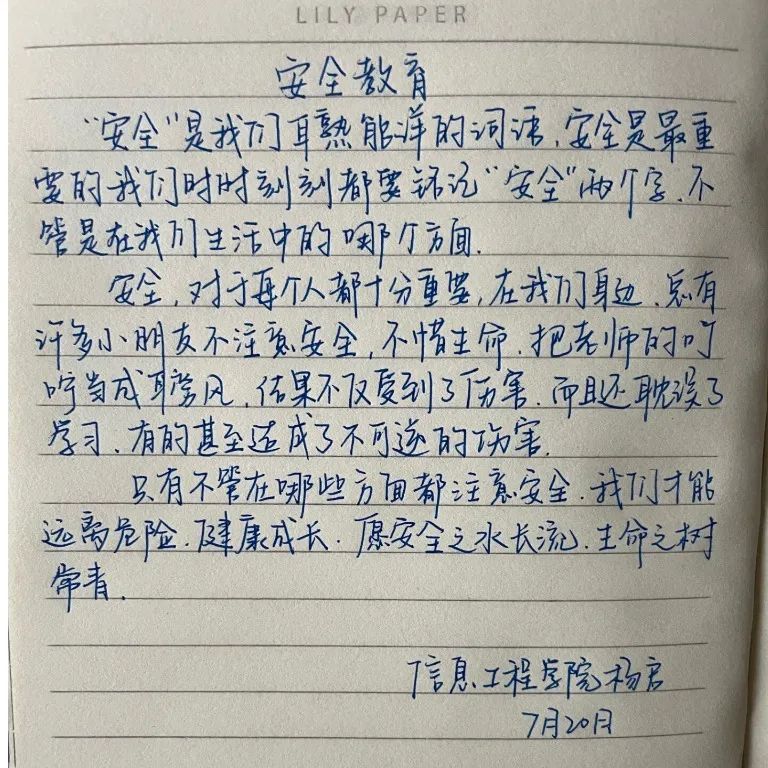 LILY PAPER
安全教育
“安全”是我们耳熟能详的词语,安全是最重
要的我们时时刻刻都要铭记“安全”两个字.不
管是在我们生活中的哪个方面.
安全,对于每个人都十分重要,在我们身边.总有
许多小朋友不注意安全,不惜生命.把老师的叮
咛当成耳旁风,结果不仅受到了伤害.而且还耽误了
学习.有的甚至造成了不可逆的伤害.
只有不管在哪些方面都注意安全.我们才能
远离危险.健康成长.愿安全之水长流.生命之树
常青.
信息工程学院杨君
7月20日